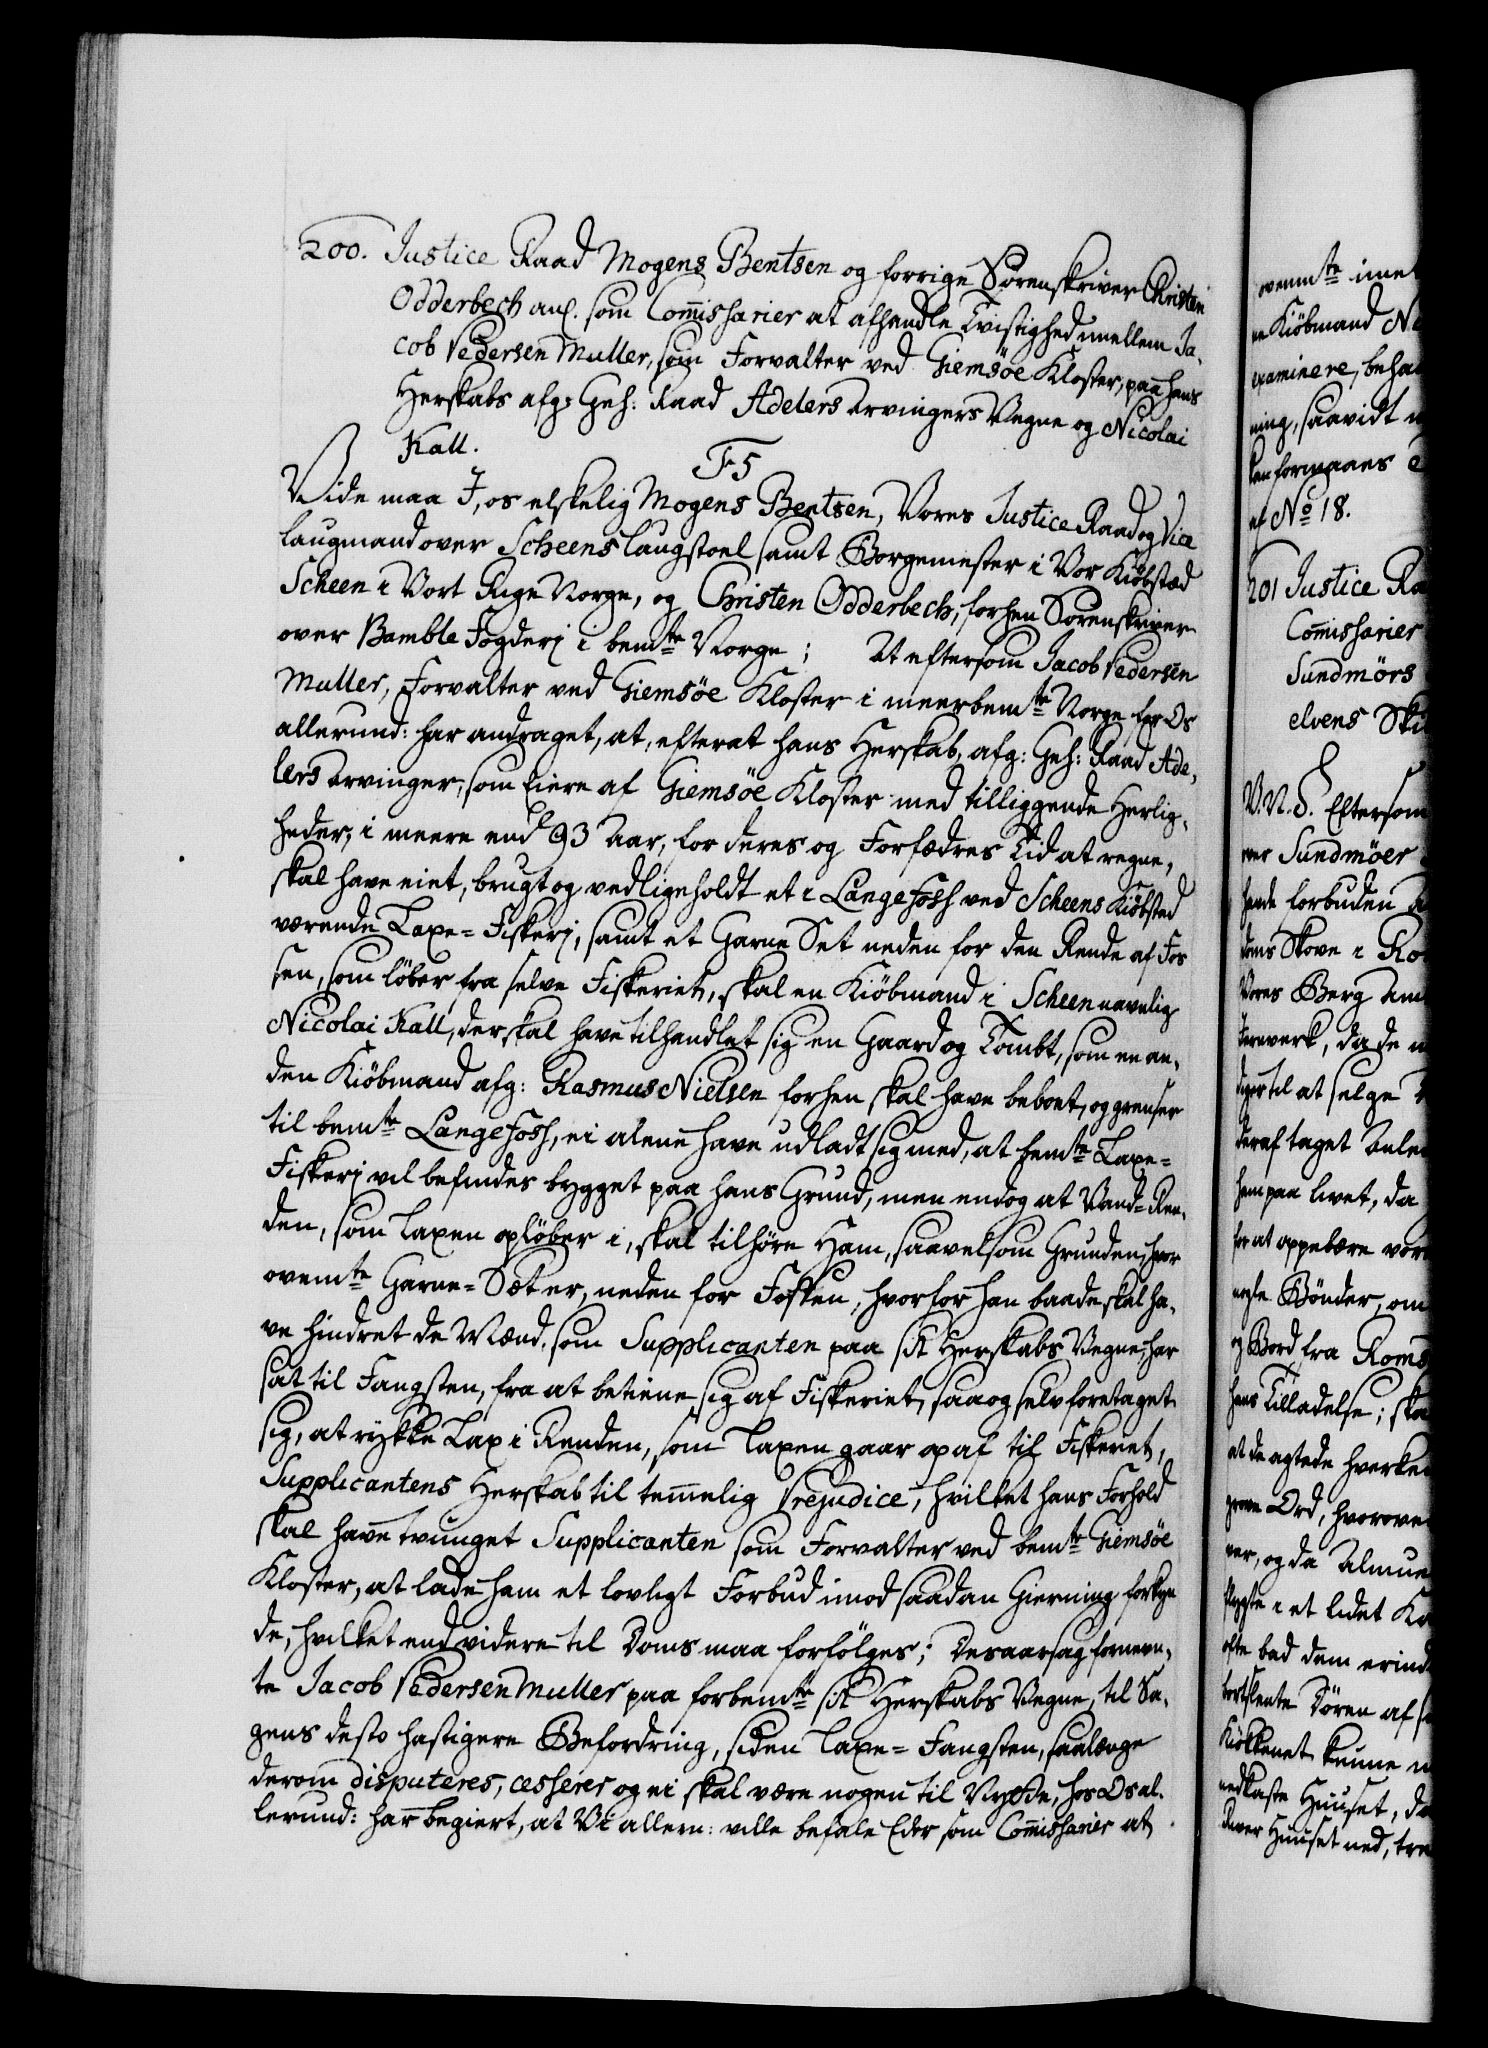 200. Justice Raad Mogens Bentsen og forrige Sorenskriver Christen
Odderbech anl. som Commissarier at afhandle Tvistighed imellem Ja-
cob Pedersen Muller, som Forvalter ved Giemsöe Kloster, paa hans
Herskabs afg: Geh: Raad Adelers Arvingers Vegne og Nicolai
Kall.
F5
Vide maa I, os elskelig Mogens Bentsen, Vores Justice Raad og Vice
laugmand over Scheens Laugstoel samt Borgemester i Vor Kiöbstæd
Scheen i Vort Rige Norge, og Christen Odderbech, forhen Sorenskriver
over Bamble Fogderj i bemte Norge; At eftersom Jacob Pedersen
Muller, Forvalter ved Giemsöe Kloster i meerbemte Norge for Os
allerund: har andraget, at, efterat hans Herskab, afg: Geh: Raad Ade-
lers Arvinger, som Eiere af Giemsöe Kloster med tilliggende Herlig-
heder, i meere end 93 Aar, for deres og Forfædres Tid at regne,
skal have eiet, brugt og vedligeholdt et i Langefoss ved Scheens Kiöbsted
værende Laxe-Fiskerj, samt et Garne Set neden for den Rende af Fos
sen, som löber fra selve Fiskeriet, skal en Kiöbmand i Scheen navnlig
Nicolai Kall, der skal have tilhandlet sig en Gaard og Tombt, som en an-
den Kiöbmand afg: Rasmus Nielsen forhen skal have beboet, og grenser
til bemte Langefoss, ei alene have udladt sig med, at bemte Laxe-
Fiskerj vil befindes bygget paa hans Grund, men endog at Vand-Ren-
den, som Laxen opløber i, skal tilhöre Ham, saavelsom Grunden, hvor
ovemte Garne-Sæt er, neden for Fossen, hvorfor han baade skal ha-
ve hindret de Mænd, som Supplicanten paa sit Herskabs Vegne, har
sat til Fangsten, fra at betiene sig af Fiskeriet, saa og selv foretaget
sig, at rykke Lax i Renden, som Laxen gaar op af til Fiskeriet,
Supplicantens Herskab til temmelig Prejudice, hvilket hans Forhold
skal have tvunget Supplicanten som Forvalter ved bemte Giemsöe
Kloster, at lade ham et lovligt Forbud imod saadan Gierning forkyn
de, hvilket end videre til Doms maa forfölges; Desaarsag fornevn-
te Jacob Pedersen Muller paa forbemte sit Herskabs Vegne, til Sa-
gens desto hastigere Befordring, siden Laxe-Fangsten, saalænge
derom disputeres, cesserer og ei skal være nogen til Nytte, hos Os al-
lerund: har begiert, at Vi allern: ville befale Eder som Commissarier at
ovenmte imel
ne Kiöbmand Ni
examinere, beha
ning, saavidt
kan formaaes
af No 18.
201 Justice Ra
Commissarier
Sundmörs
elvens Ski
V. N. S. Eftersom
over Sundmöer
forbuden
doms Skove i Ro
Vores Berg Am
Jernverk, da de
til at selge
deraf taget Anle
ham paa livet, da
for at oppebære vore
nogle Bönder, om
og Bord fra Roms
hans Tilladelse; ska
at de agtede hverken
grove Ord, hvorover
ner, og da Almue
flygte i et lidet Ka
ofte bad dem erind
Dören af
Kiökkenet kunne
nedkaste Huuset, da
River Huuset ned, tre